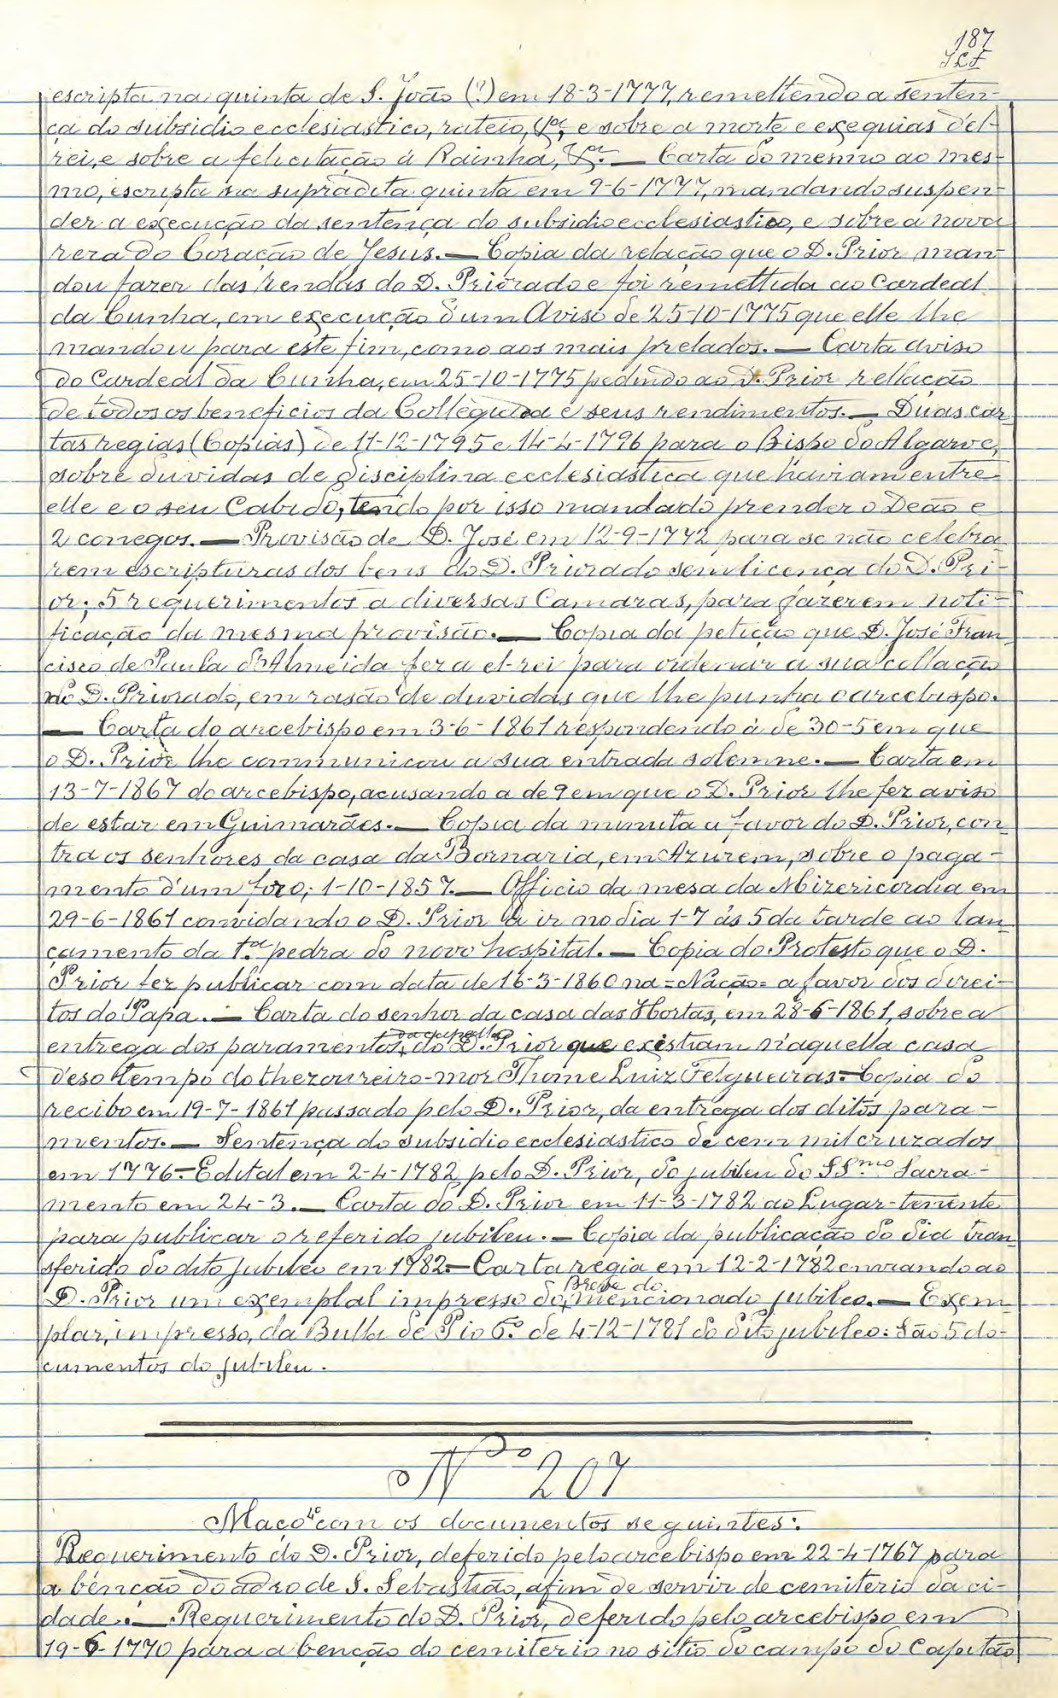 187
escripta na quinta de S. João (?) em 18-3-1777, remettendo a senten-
ça do subsidio ecclesiastico, rateio, &ª, e sobre a morte e exequias d'el-
rei, e sobre a felicitação á Rainha, &ª. — Carta do mesmo ao mes-
mo, escripta na supradita quinta em 9-6-1777, mandando suspen-
der a execução da sentença do subsidio ecclesiastico, e sobre a nova
rera do Coração de Jesus. — Copia da relação que o D. Prior man-
dou fazer das rendas do D. Priorado e foi remettida ao Cardeal
da Cunha, em execução d'um Aviso de 25-10-1775 que elle lhe
mandou para este fim, como aos mais prelados. — Carta aviso
do Cardeal da Cunha, em 25-10-1775 pedindo ao D. Prior rellação
de todos os beneficios da Collegiada e seus rendimentos. — Duas car-
tas regias (Copias) de 11-12-1795 e 14-4-1796 para o Bispo do Algarve,
sobre duvidas de disciplina ecclesiastica que haviam entre
elle e o seu Cabido, tendo por isso mandado prender o Deão e
2 conegos. — Provisão de D. José em 12-9-1772 para se não celebra-
rem escripturas dos bens do D. Priorado sem licença do D. Pri-
or; 5 requerimentos a diversas Camaras, para fazerem noti-
ficação da mesma provisão. — Copia da petição que D. José Fran-
cisco de Paula d'Almeida fez a el-rei para ordenar a sua collação
no D. Priorado, em rasão de duvidas que lhe punha o arcebispo.
— Carta do arcebispo em 3-6-1861 respondendo á de 30-5 em que
o D. Prior lhe communicou a sua entrada solemne. — Carta em
13-7-1867 do arcebispo, acusando a de 9 em que o D. Prior lhe fez aviso
de estar em Guimarães. — Copia da minuta a favor do D. Prior, con-
tra os senhores da casa da Bornaria, em Azurem, sobre o paga-
mento d'um foro; 1-10-1857. — Officio da mesa da Mizericordia em
29-6-1861 convidando o D. Prior a ir no dia 1-7 ás 5 da tarde ao lan-
çamento da 1.ª pedra do novo hospital. — Copia do Protesto que o D.
Prior fez publicar com data de 16-3-1860 na = Nação = a favor dos direi-
tos do Papa. — Carta do senhor da casa das Hortas, em 28-6-1861, sobre a
entrega dos paramentos, da capella do D. Prior que existiam n'aquella casa
deso tempo do thezoureiro-mor Thome Luiz Felgueiras. — Copia do
recibo em 19-7-1861 passado pelo D. Prior, da entrega dos ditos para-
mentos. — Sentença do subsidio ecclesiastico de cem mil cruzados
em 1776. — Edital em 2-4-1782 pelo D. Prior, do jubileu do SSmo Sacra-
mento em 24-3. — Carta do D. Prior em 11-3-1782 ao Lugar-tenente
para publicar o referido jubileu. — Copia da publicação do dia tran-
sferido do dito jubileo em 1782. — Carta regia em 12-2-1782 enviando ao
D. Prior um exemplal impresso do Breve do mencionado jubileo. — Exem-
plar, impresso, da Bulla de Pio 6.º de 4-12-1781 do dito jubileo: São 5 do-
cumentos do jubileu.
Nº 207
Maço 4º com os documentos seguintes:
Requerimento do D. Prior, deferido pelo arcebispo em 22-4-1767 para
a benção do adro de S. Sebastião, afim de servir de cemiterio da ci-
dade. — Requerimento do D. Prior, deferido pelo arcebispo em
19-6-1770 para a benção do cemiterio no sitio do campo do Capitão